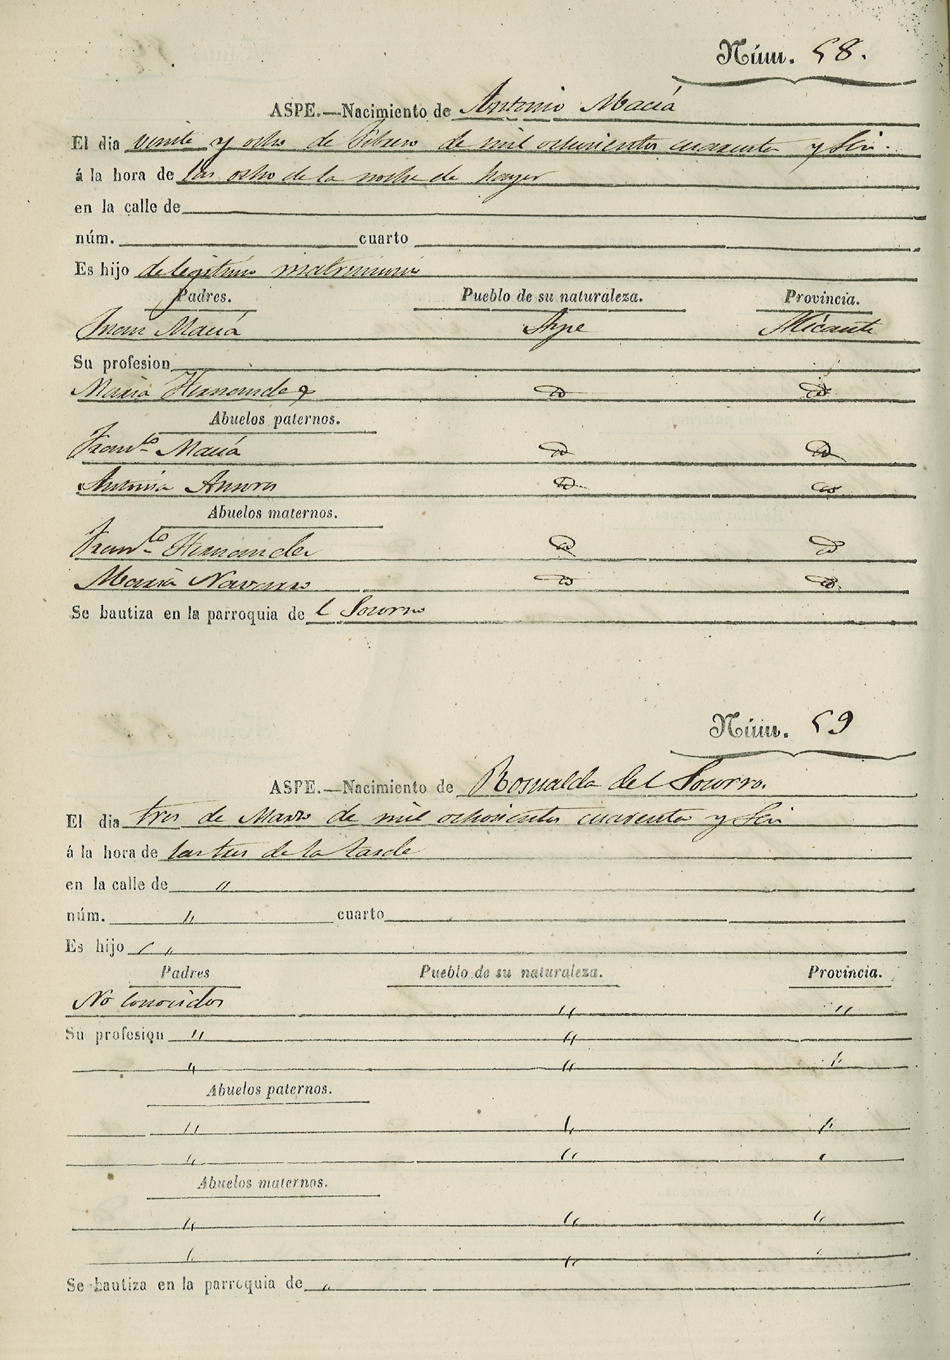 Núm. 58.
ASPE.—Nacimiento de Antonio Maciá
El dia veinte y ocho de Febrero de mil ochocientos cuarenta y seis.
á la hora de las ocho de la noche de hayer
en la calle de
núm. cuarto
Es hijo de legitimo matrimonio
Padres. Pueblo de su naturaleza. Provincia.
Juan Maciá Aspe Alicante
Su profesion
Maria Hernandez
Abuelos paternos.
Franco Maciá
Antonia
Abuelos maternos.
Franco Hernandez
Maria Navarro
Se bautiza en la parroquia de l Socorro
Núm. 59
ASPE.—Nacimiento de Romualda del Socorro.
El dia tres de Marzo de mil ochocientos cuarenta y seis
á la hora de las tres de la tarde
en la calle de "
núm. " cuarto
Es hijo " "
Padres Pueblo de su naturaleza. Provincia.
No conocidos " "
Su profesion " "
" " "
Abuelos paternos.
" " "
" " "
Abuelos maternos.
" " "
" " "
Se bautiza en la parroquia de "